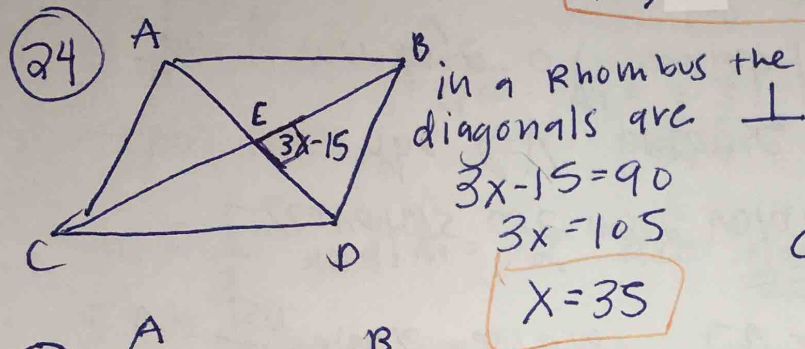 24
A
B
E
3x-15
C
D
in a Rhombus the
diagonals are ⊥
3x-15=90
3x=105
x=35
A
B